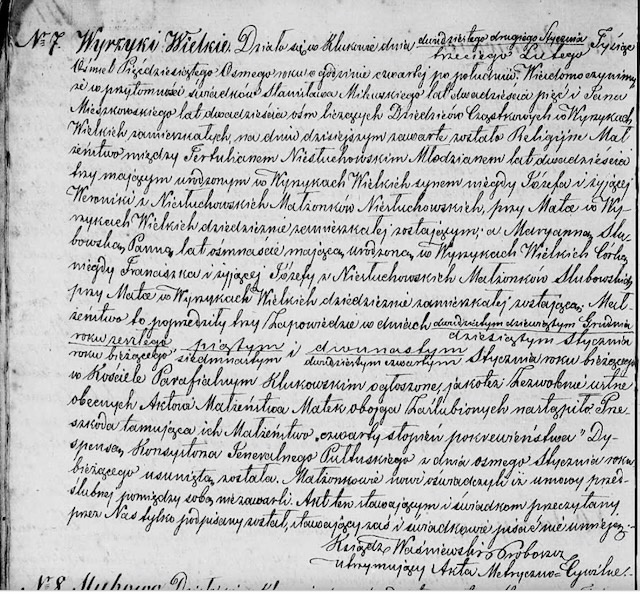 № 7. Wyrzyki Wielkie. Działo się w Klukowie dnia dwudziestego drugiego Stycznia / trzeciego Lutego Tysiąc
Ośmset Pięćdziesiątego Osmego roku o godzinie czwartej po południu. Wiadomo czynimy
że w przytomności świadków Stanisława Milewskiego lat dwadzieścia pięć i Jana
Mieszkowskiego lat dwadzieścia ośm liczących Dziedziców Cząstkowych w Wyrzykach
Wielkich zamieszkałych, na dniu dzisiejszym zawarte zostało Religijne Mał-
żeństwo między Tertulianem Niesłuchowskim Młodzianem lat dwadzieścia
trzy mającym urodzonym w Wyrzykach Wielkich synem niegdy Józefa i żyjącej
Weroniki z Niesłuchowskich Małżonków Niesłuchowskich, przy Matce w Wy-
rzykach Wielkich dziedzicznie zamieszkałej zostającym; a Maryanną Słu-
bowską Panną, lat ośmnaście mającą urodzoną w Wyrzykach Wielkich Córką
niegdy Franciszka i żyjącej Józefy z Niesłuchowskich Małżonków Słubowskich
przy Matce w Wyrzykach Wielkich dziedzicznie zamieszkałej zostającą. Mał-
żeństwo to poprzedziły trzy Zapowiedzie w dniach dwudziestym dziewiątym Grudnia
roku zeszłego / dziesiątym Stycznia
roku bieżącego piątym / siedmnastym i dwunastym / dwudziestym czwartym Stycznia roku bieżącego
w Kościele Parafialnym Klukowskim ogłoszone, jakoteż Zezwolenie ustne
obecnych Aktowi Małżeństwa Matek obojga Zaślubionych nastąpiło Prze-
szkoda tamująca ich Małżeństwo „czwarty stopień pokrewieństwa" Dy-
spensą Konsystorza Jeneralnego Pułtuskiego z dnia osmego Stycznia roku
bieżącego usuniętą została. Małżonkowie nowi oświadczyli iż umowy przed-
ślubnej pomiędzy sobą niezawarli. Akt ten stawającym i świadkom przeczytany
przez Nas tylko podpisany został, stawający zaś i świadkowie pisać nie umieją.
Ksiądz Waśniewski Proboszcz
utrzymujący Akta Metryczno-Cywilne.
№ 8.